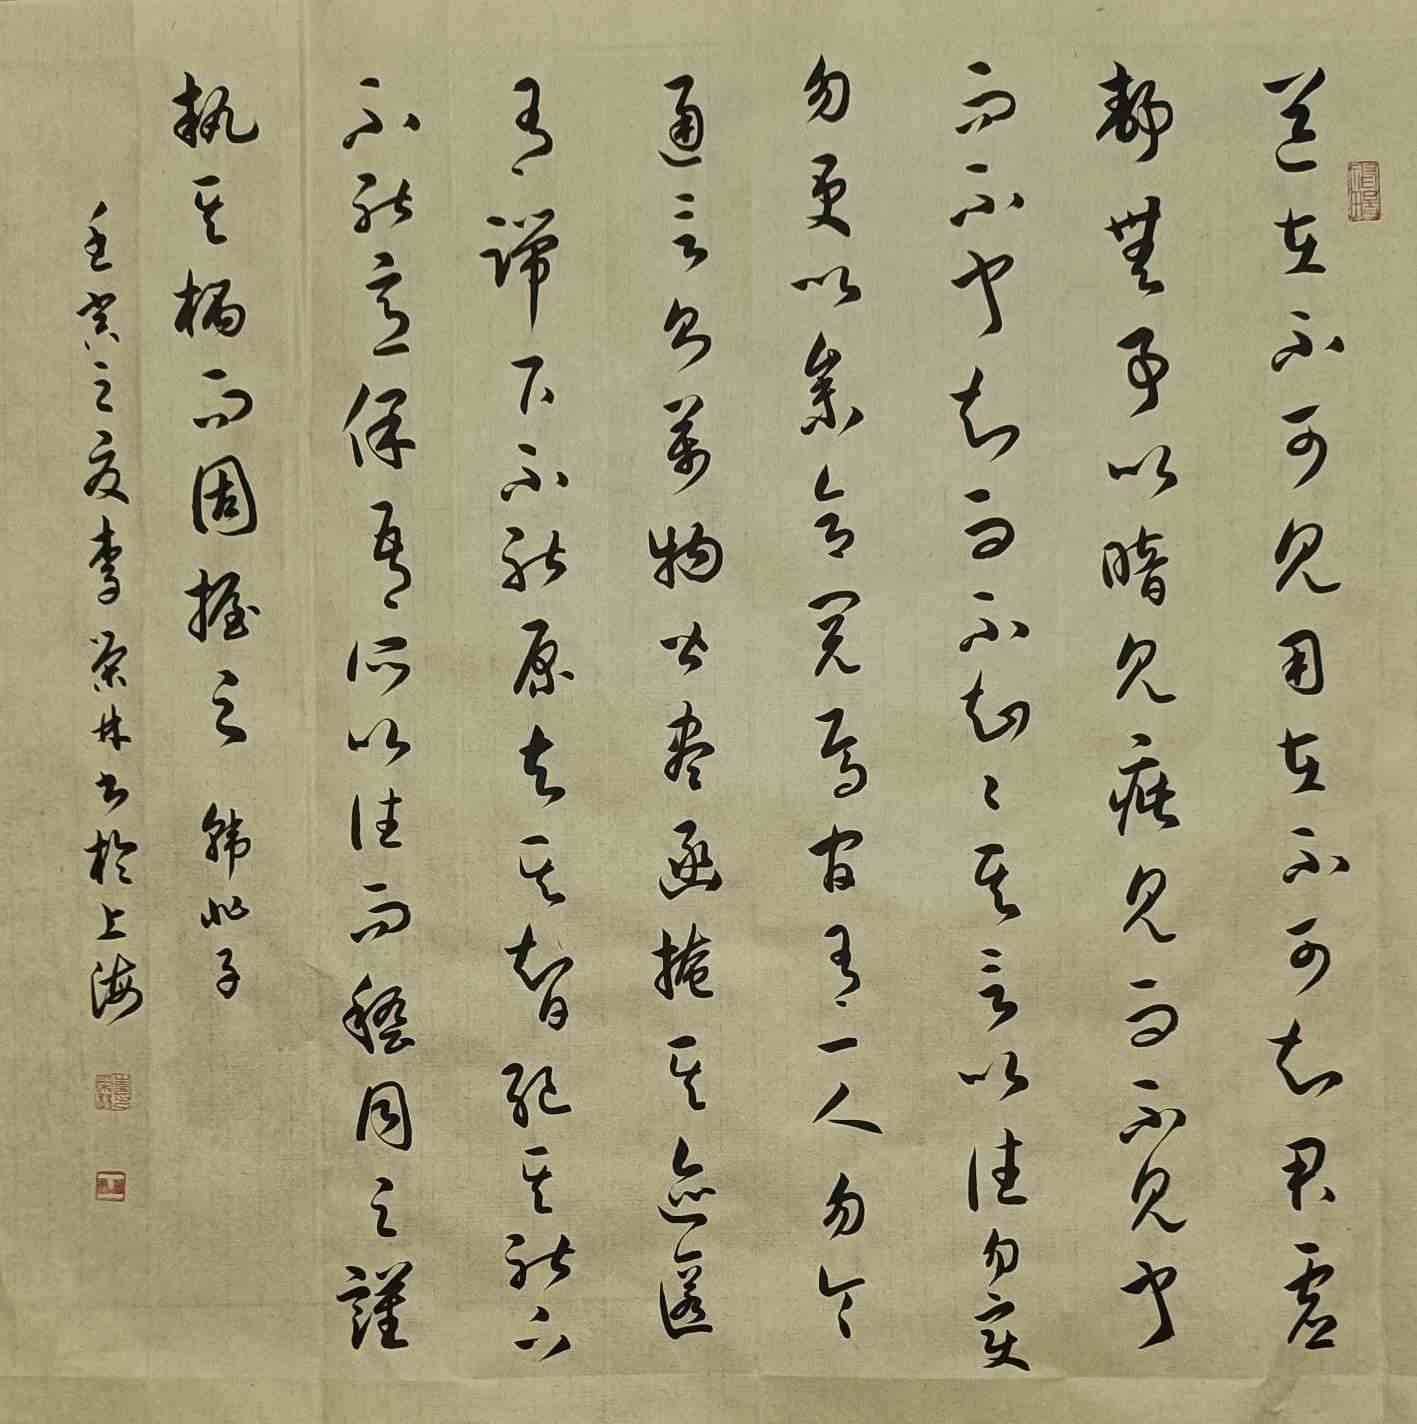 道在不可見用在不可知君虛
靜無事以暗見疵見而不見聞
而不聞知而不知〻其言以往勿變
勿更以參合閱焉官有一人勿令
通言則萬物皆盡函掩其跡匿
有端下不能原去其智絕其能下
不能意保吾所以往而稽同之謹
執其柄而固握之 韓非子
壬寅之夏李榮林書於上海